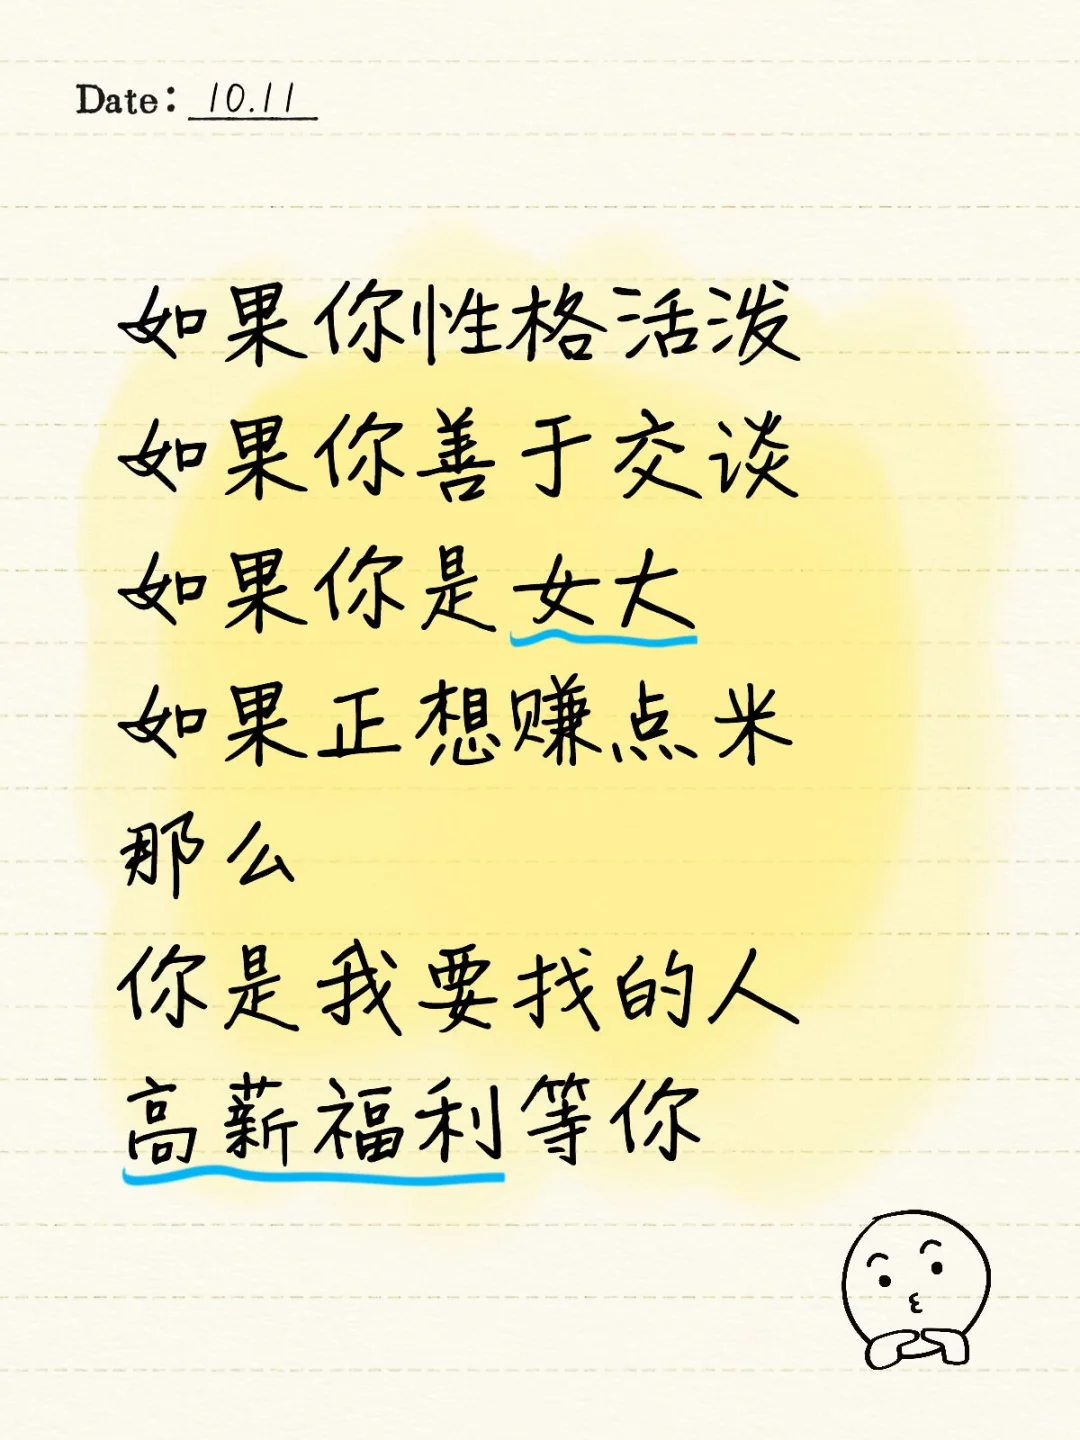 Date: 10.11
如果你性格活泼
如果你善于交谈
如果你是女大
如果正想赚点米
那么
你是我要找的人
高薪福利等你